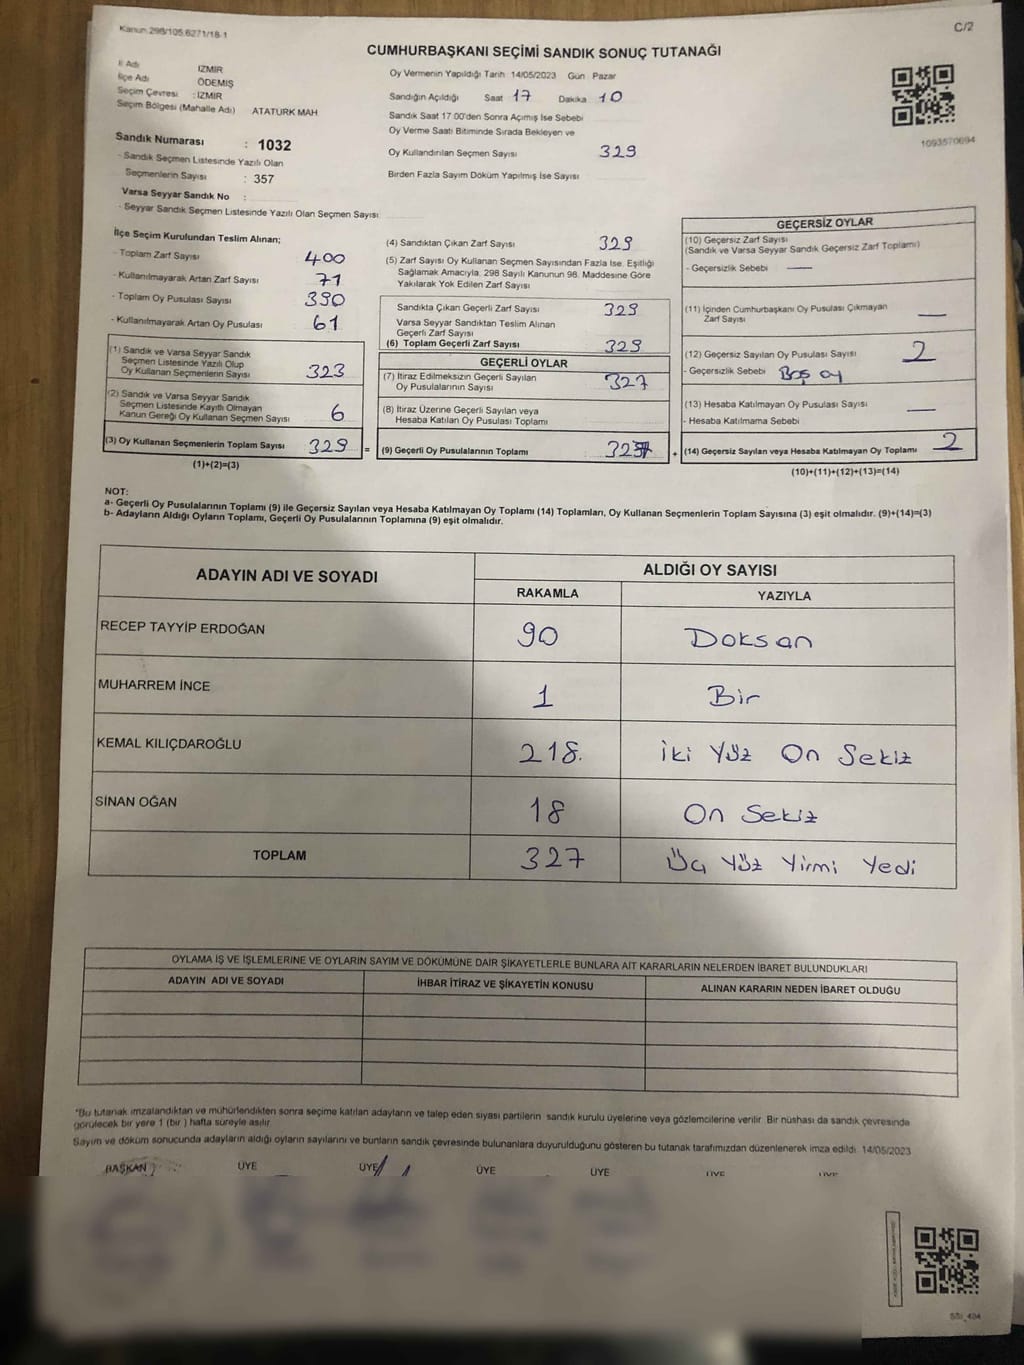 Kanun 298/105,6271/18-1
C/2
CUMHURBAŞKANI SEÇİMİ SANDIK SONUÇ TUTANAĞI
İl Adı İZMİR
İlçe Adı ÖDEMİŞ
Seçim Çevresi : İZMİR
Seçim Bölgesi (Mahalle Adı) ATATÜRK MAH
Sandık Numarası : 1032
- Sandık Seçmen Listesinde Yazılı Olan
Seçmenlerin Sayısı : 357
Varsa Seyyar Sandık No :
- Seyyar Sandık Seçmen Listesinde Yazılı Olan Seçmen Sayısı
Oy Vermenin Yapıldığı Tarih 14/05/2023 Gün Pazar
Sandığın Açıldığı Saat 17 Dakika 10
Sandık Saat 17.00'den Sonra Açımış İse Sebebi
Oy Verme Saati Bitiminde Sırada Bekleyen ve
Oy Kullandırılan Seçmen Sayısı 329
Birden Fazla Sayım Döküm Yapılmış İse Sayısı
1093570694
İlçe Seçim Kurulundan Teslim Alınan;
- Toplam Zarf Sayısı 400
- Kullanılmayarak Artan Zarf Sayısı 71
- Toplam Oy Pusulası Sayısı 390
- Kullanılmayarak Artan Oy Pusulası 61
(1) Sandık ve Varsa Seyyar Sandık
Seçmen Listesinde Yazılı Olup
Oy Kullanan Seçmenlerin Sayısı 323
(2) Sandık ve Varsa Seyyar Sandık
Seçmen Listesinde Kayıtlı Olmayan
Kanun Gereği Oy Kullanan Seçmen Sayısı 6
(3) Oy Kullanan Seçmenlerin Toplam Sayısı 329 =
(1)+(2)=(3)
(4) Sandıktan Çıkan Zarf Sayısı 329
(5) Zarf Sayısı Oy Kullanan Seçmen Sayısından Fazla İse, Eşitliği
Sağlamak Amacıyla, 298 Sayılı Kanunun 98. Maddesine Göre
Yakılarak Yok Edilen Zarf Sayısı
Sandıkta Çıkan Geçerli Zarf Sayısı 329
Varsa Seyyar Sandıktan Teslim Alınan
Geçerli Zarf Sayısı
(6) Toplam Geçerli Zarf Sayısı 329
GEÇERLİ OYLAR
(7) İtiraz Edilmeksizin Geçerli Sayılan
Oy Pusulalarının Sayısı 327
(8) İtiraz Üzerine Geçerli Sayılan veya
Hesaba Katılan Oy Pusulası Toplamı
(9) Geçerli Oy Pusulalarının Toplamı 327 +
GEÇERSİZ OYLAR
(10) Geçersiz Zarf Sayısı
(Sandık ve Varsa Seyyar Sandık Geçersiz Zarf Toplamı)
- Geçersizlik Sebebi —
(11) İçinden Cumhurbaşkanı Oy Pusulası Çıkmayan
Zarf Sayısı —
(12) Geçersiz Sayılan Oy Pusulası Sayısı 2
- Geçersizlik Sebebi Boş oy
(13) Hesaba Katılmayan Oy Pusulası Sayısı —
- Hesaba Katılmama Sebebi
(14) Geçersiz Sayılan veya Hesaba Katılmayan Oy Toplamı 2
(10)+(11)+(12)+(13)=(14)
NOT:
a- Geçerli Oy Pusulalarının Toplamı (9) ile Geçersiz Sayılan veya Hesaba Katılmayan Oy Toplamı (14) Toplamları, Oy Kullanan Seçmenlerin Toplam Sayısına (3) eşit olmalıdır. (9)+(14)=(3)
b- Adayların Aldığı Oyların Toplamı, Geçerli Oy Pusulalarının Toplamına (9) eşit olmalıdır.
ADAYIN ADI VE SOYADI ALDIĞI OY SAYISI
RAKAMLA YAZIYLA
RECEP TAYYİP ERDOĞAN 90 Doksan
MUHARREM İNCE 1 Bir
KEMAL KILIÇDAROĞLU 218. İki Yüz On Sekiz
SİNAN OĞAN 18 On Sekiz
TOPLAM 327 Üç Yüz Yirmi Yedi
OYLAMA İŞ VE İŞLEMLERİNE VE OYLARIN SAYIM VE DÖKÜMÜNE DAİR ŞİKAYETLERLE BUNLARA AİT KARARLARIN NELERDEN İBARET BULUNDUKLARI
ADAYIN ADI VE SOYADI İHBAR İTİRAZ VE ŞİKAYETİN KONUSU ALINAN KARARIN NEDEN İBARET OLDUĞU
*Bu tutanak imzalandıktan ve mühürlendikten sonra seçime katılan adayların ve talep eden siyasi partilerin sandık kurulu üyelerine veya gözlemcilerine verilir. Bir nüshası da sandık çevresinde
görülecek bir yere 1 (bir) hafta süreyle asılır.
Sayım ve döküm sonucunda adayların aldığı oyların sayılarını ve bunların sandık çevresinde bulunanlara duyurulduğunu gösteren bu tutanak tarafımızdan düzenlenerek imza edildi. 14/05/2023
BAŞKAN ÜYE ÜYE ÜYE ÜYE ÜYE ÜYE